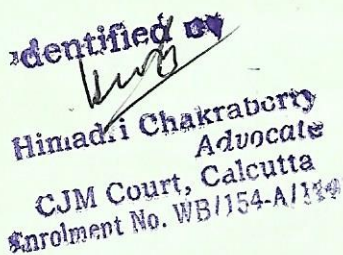 Identified by
Himadri Chakraborty
Advocate
CJM Court, Calcutta
Enrolment No. WB/154-A/